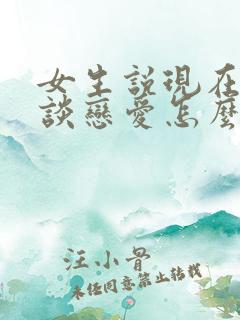 女生説現在
談戀愛怎麼
汪小骨
未经同意禁止转载